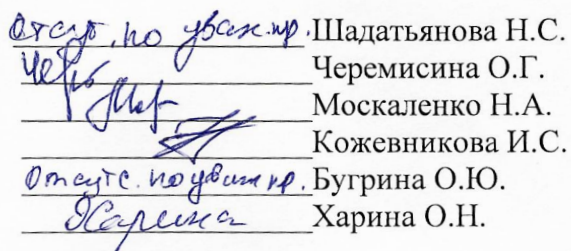 Отсут. по уваж. пр. Шадатьянова Н.С.
Черемисина О.Г.
Москаленко Н.А.
Кожевникова И.С.
Отсутс. по уваж пр. Бугрина О.Ю.
Харина Харина О.Н.